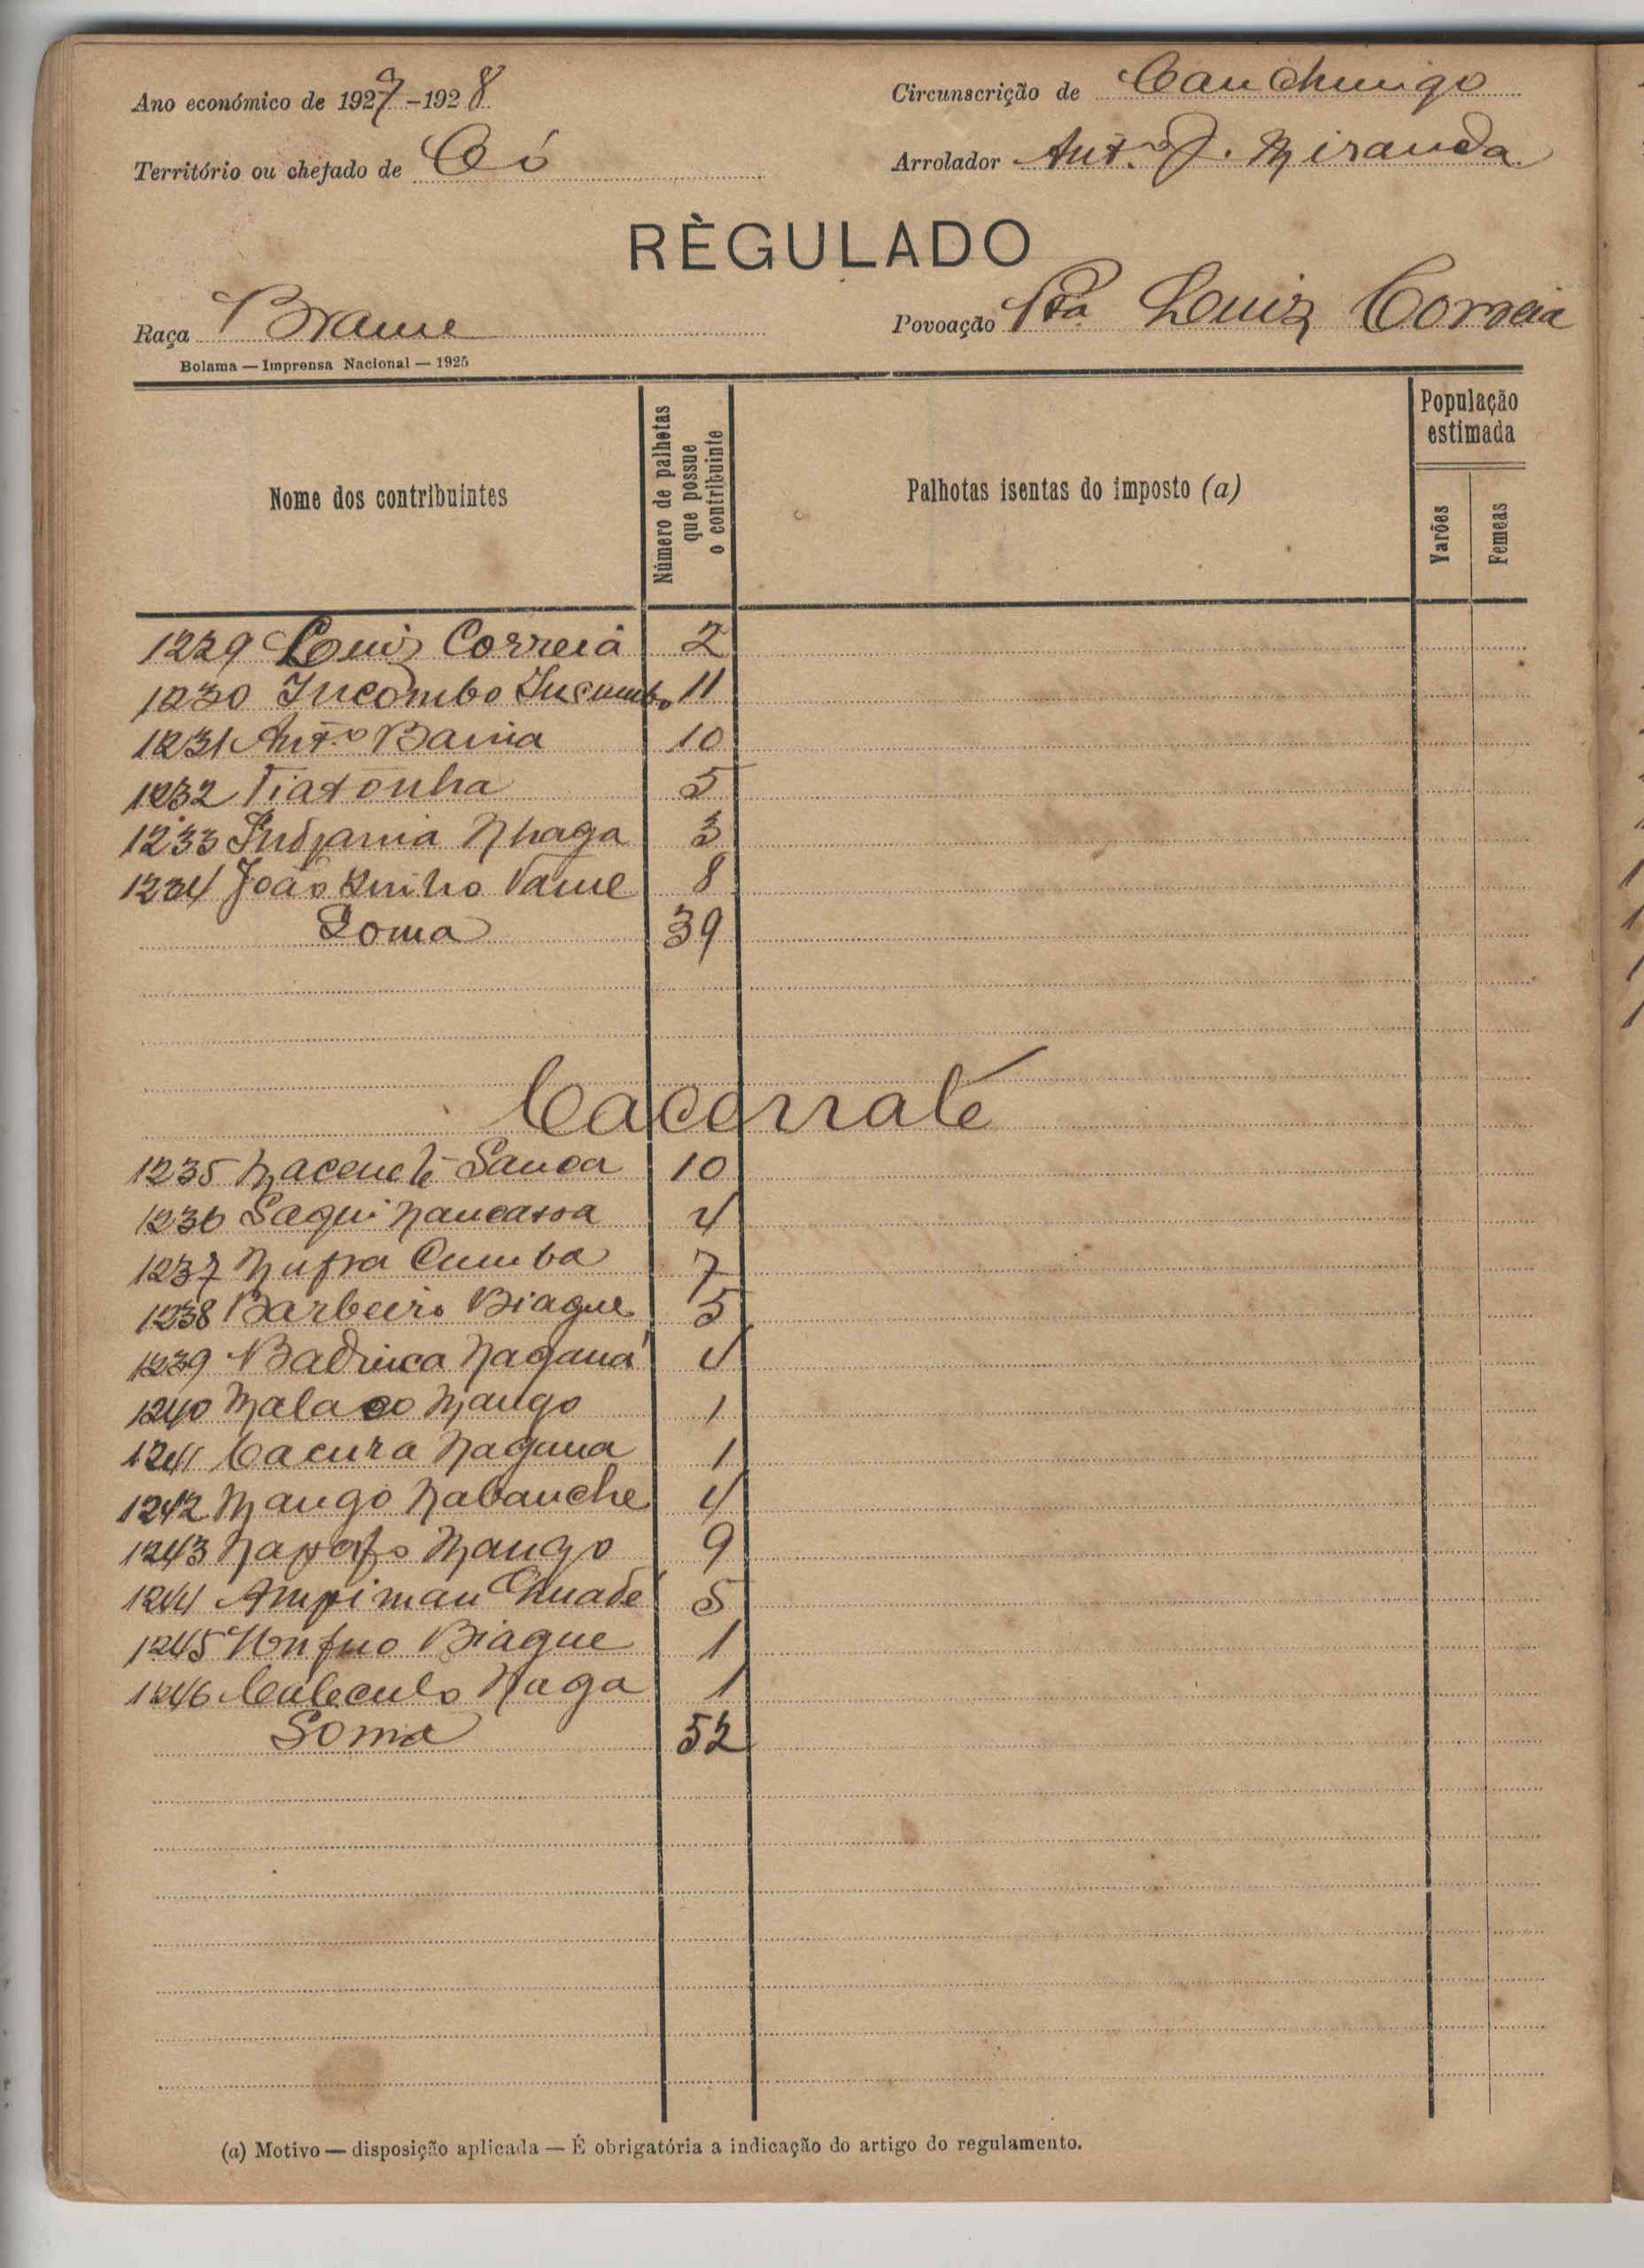 Ano económico de 1927-1928
Circunscrição de Canchungo
Território ou chefado de Có
Arrolador Antº J. Miranda
RÈGULADO
Raça Brame
Povoação Pta Luiz Correia
Bolama — Imprensa Nacional — 1925
Nome dos contribuintes
Número de palhotas que possue o contribuinte
Palhotas isentas do imposto (a)
População estimada
Varões
Femeas
1229 Luiz Correia 2
1230 Incombo Incumbo 11
1231 Antº Baina 10
1232 Tiatonha 5
1233 Indjania Nhaga 3
1234 João Vame 8
Soma 39
Cacorraté
1235 Sanoa 10
1236 Saqui Nancassa 4
1237 Nafra Cumba 7
1238 Barbeiro Biague 5
1239 Badinca Naganá 4
1240 Mala Mango 1
1241 Cacura Nagana 1
1242 Mango Nabanche 4
1243 Mango 9
1244 Ampiman Chuadé 5
1245 Biague 1
1246 Naga 1
Soma 52
(a) Motivo — disposição aplicada — É obrigatória a indicação do artigo do regulamento.